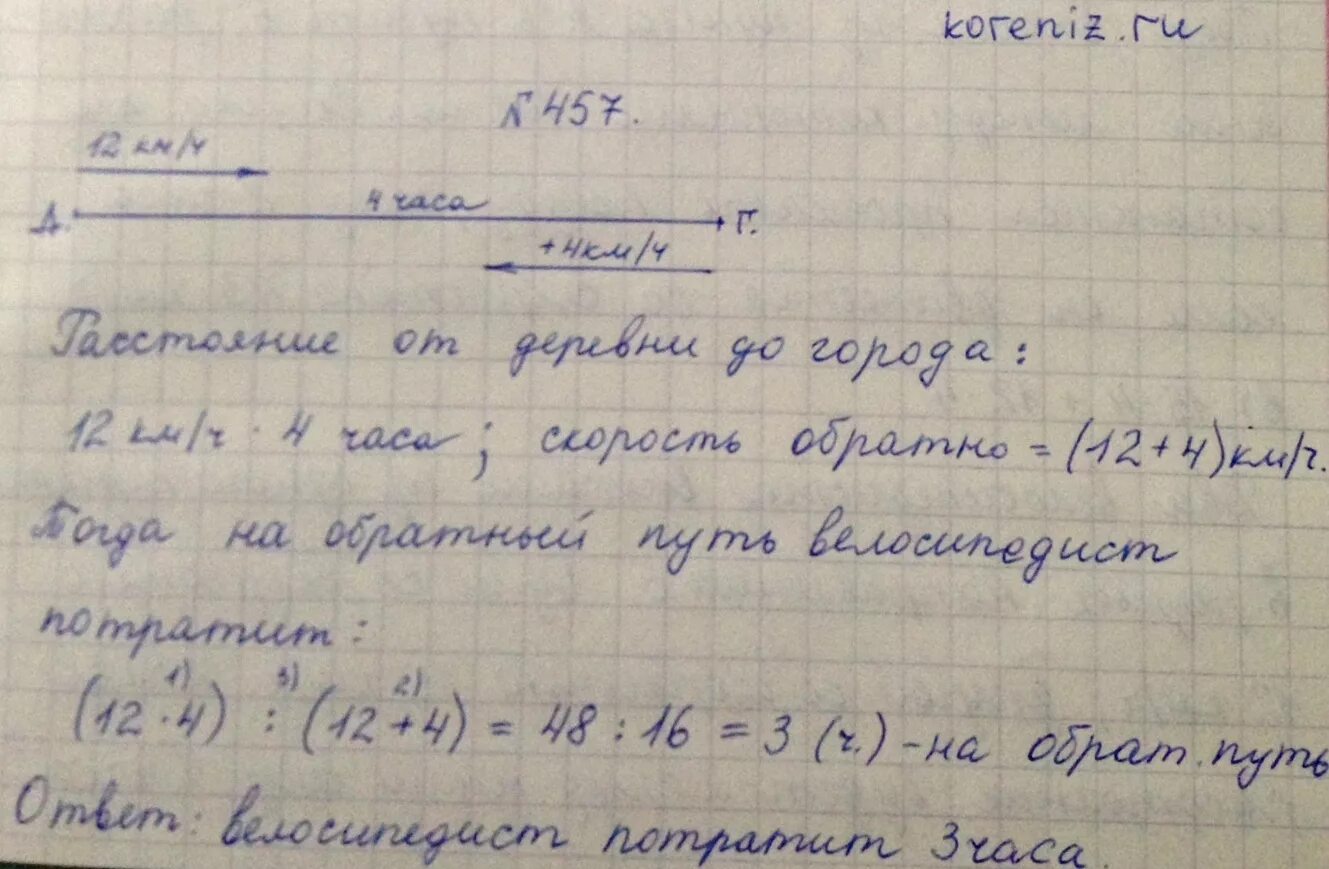 koreniz.ru
№457.
12 км/ч
4 часа
Д. Г.
+4км/ч
Расстояние от деревни до города:
12 км/ч · 4 часа; скорость обратно = (12+4)км/ч.
Тогда на обратный путь велосипедист
потратит:
1) 3) 2)
(12·4) : (12+4) = 48 : 16 = 3 (ч.) - на обрат. путь
Ответ: велосипедист потратит 3 часа.